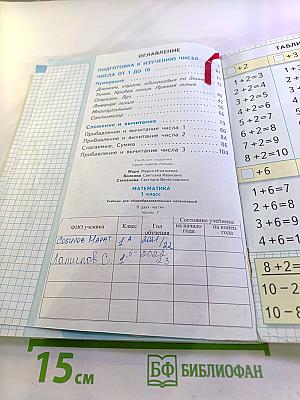 ОГЛАВЛЕНИЕ
ПОДГОТОВКА К ИЗУЧЕНИЮ ЧИСЕЛ
ЧИСЛА ОТ 1 ДО 10
Нумерация
Точка. Кривая линия. Прямая линия.
Отрезок. Луч
Ломаная линия
Многоугольник
Сантиметр
Сложение и вычитание
Прибавление и вычитание числа 1 80
Прибавление и вычитание числа 2 84
Слагаемые. Сумма 86
Прибавление и вычитание числа 3 104
Учебное издание
Моро Мария Игнатьевна
Волкова Светлана Ивановна
Степанова Светлана Вячеславовна
МАТЕМАТИКА
1 класс
Учебник для общеобразовательных организаций
В двух частях
Часть 1
ФИО ученика Класс Год обучения Состояние учебника
на начало года на конец года
Марат 1А 2021/22
С. 1
ТАБЛИ
+2
1+2=3
2+2=4
3+2=5
4+2=6
5+2=7
6+2=8
7+2=9
8+2=10
+6
1+6=7
2+6=8
3+6=9
4+6=
8+2=
10-2
10-8
15 СМ
БФ БИБЛИОФАН